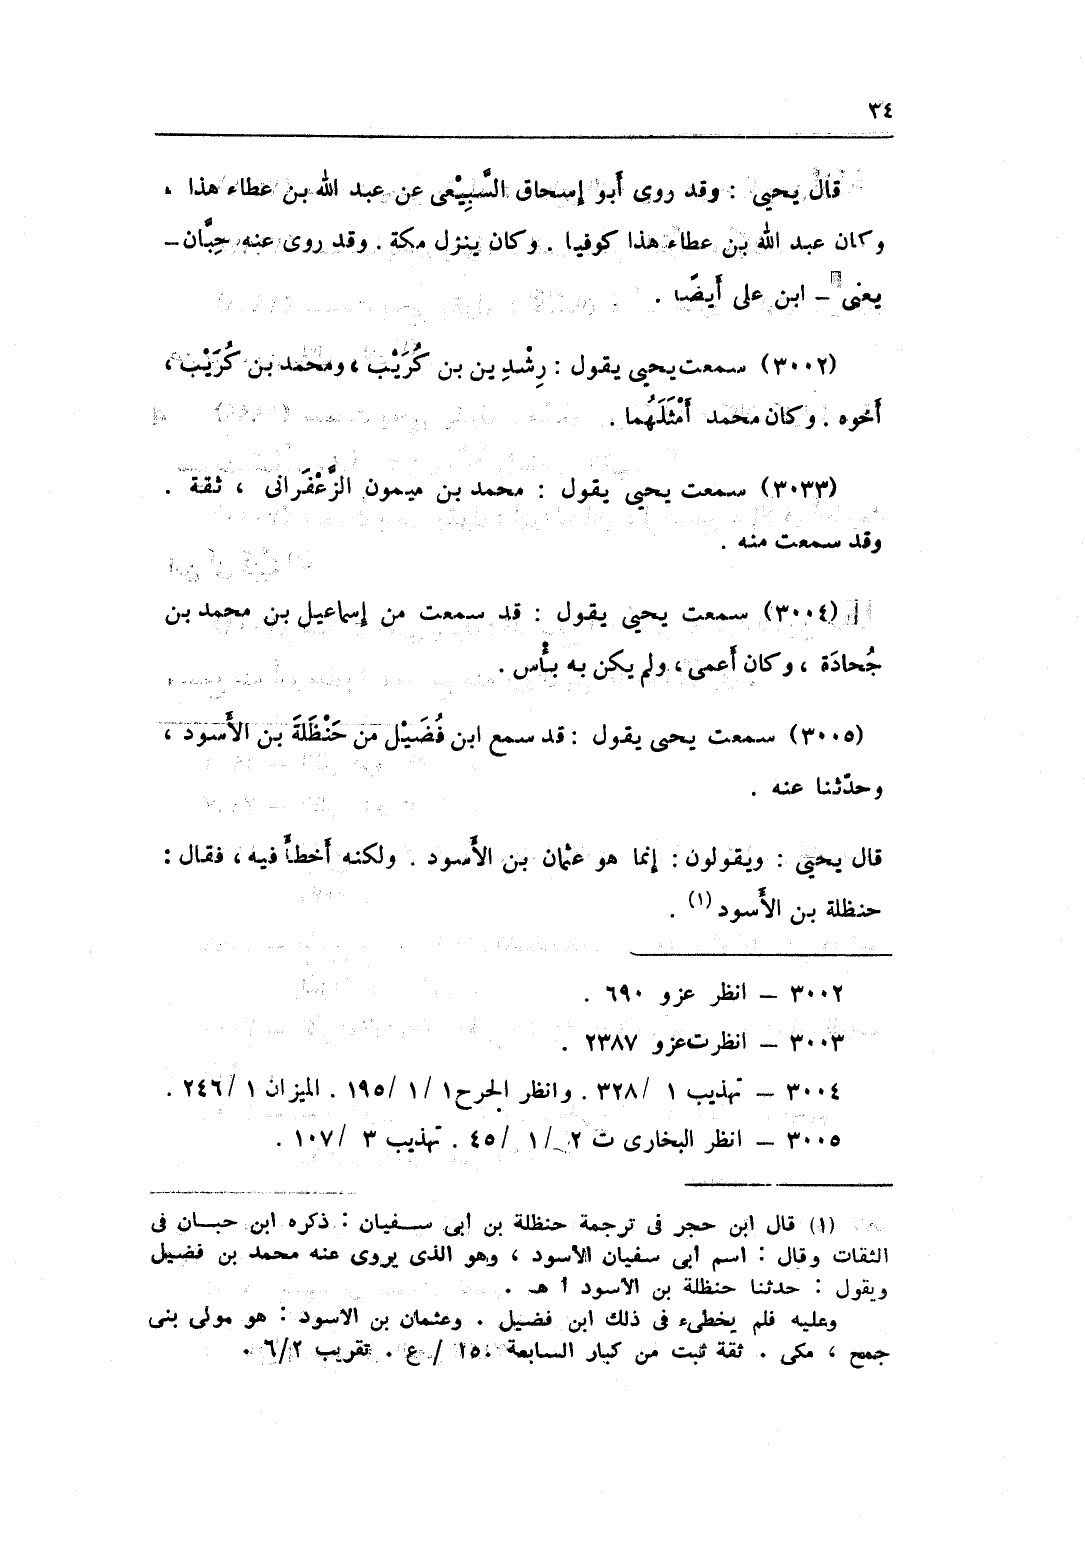 ٣٤
قال يحيى : وقد روى أَبو إسحاق السَّبِيْعى عن عبد الله بن عطاء هذا ،
وكان عبد الله بن عطاء هذا كوفيا . وكان ينزل مكة . وقد روى عنه حِبَّان –
يعنى – ابن على أَيضًا .
(٣٠٠٢) سمعت يحيى يقول : رِشْدِين بن كُرَيْب ، ومحمد بن كُرَيْب ،
أَخوه . وكان محمد أَمْثَلَهُما .
(٣٠٣٣) سمعت يحيى يقول : محمد بن ميمون الزَّعْفَرانى ، ثقة .
وقد سمعت منه .
(٣٠٠٤) سمعت يحيى يقول : قد سمعت من إسماعيل بن محمد بن
جُحادَة ، وكان أَعمى ، ولم يكن به بأْس .
(٣٠٠٥) سمعت يحيى يقول : قد سمع ابن فُضَيْل من حَنْظَلَةَ بن الأَسود ،
وحدّثنا عنه .
قال يحيى : ويقولون : إنما هو عثمان بن الأَسود . ولكنه أَخطأَ فيه ، فقال :
حنظلة بن الأَسود (١) .
٣٠٠٢ – انظر عزو ٦٩٠ .
٣٠٠٣ – انظر ت عزو ٢٣٨٧ .
٣٠٠٤ – تهذيب ١ /٣٢٨ . وانظر الجرح ١ /١ /١٩٥ . الميزان ١ /٢٤٦ .
٣٠٠٥ – انظر البخارى ت ٢ /١ /٤٥ . تهذيب ٣ /١٠٧ .
(١) قال ابن حجر فى ترجمة حنظلة بن أبى سفيان : ذكره ابن حبان فى
الثقات وقال : اسم أبى سفيان الأسود ، وهو الذى يروى عنه محمد بن فضيل
ويقول : حدثنا حنظلة بن الأسود أ هـ .
وعليه فلم يخطىء فى ذلك ابن فضيل . وعثمان بن الاسود : هو مولى بنى
جمح ، مكى . ثقة ثبت من كبار السابعة ١٥٠ / ع . تقريب ٦/٢ .